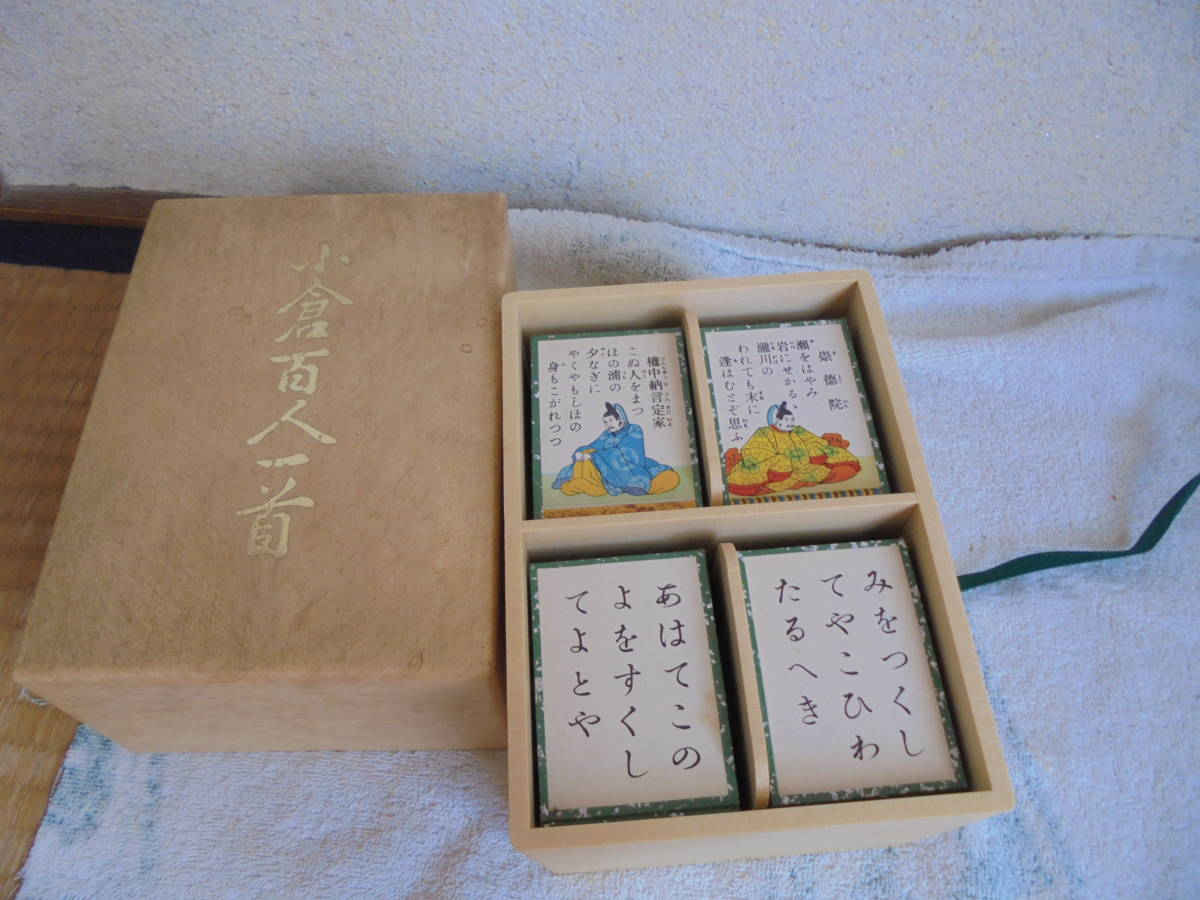 小倉百人一首
権中納言定家
こぬ人をまつ
ほの浦の
夕なぎに
やくやもしほの
身もこがれつつ
崇徳院
瀬をはやみ
岩にせかるゝ
瀧川の
われても末に
逢はむとぞ思ふ
あはてこの
よをすくし
てよとや
みをつくし
てやこひわ
たるへき